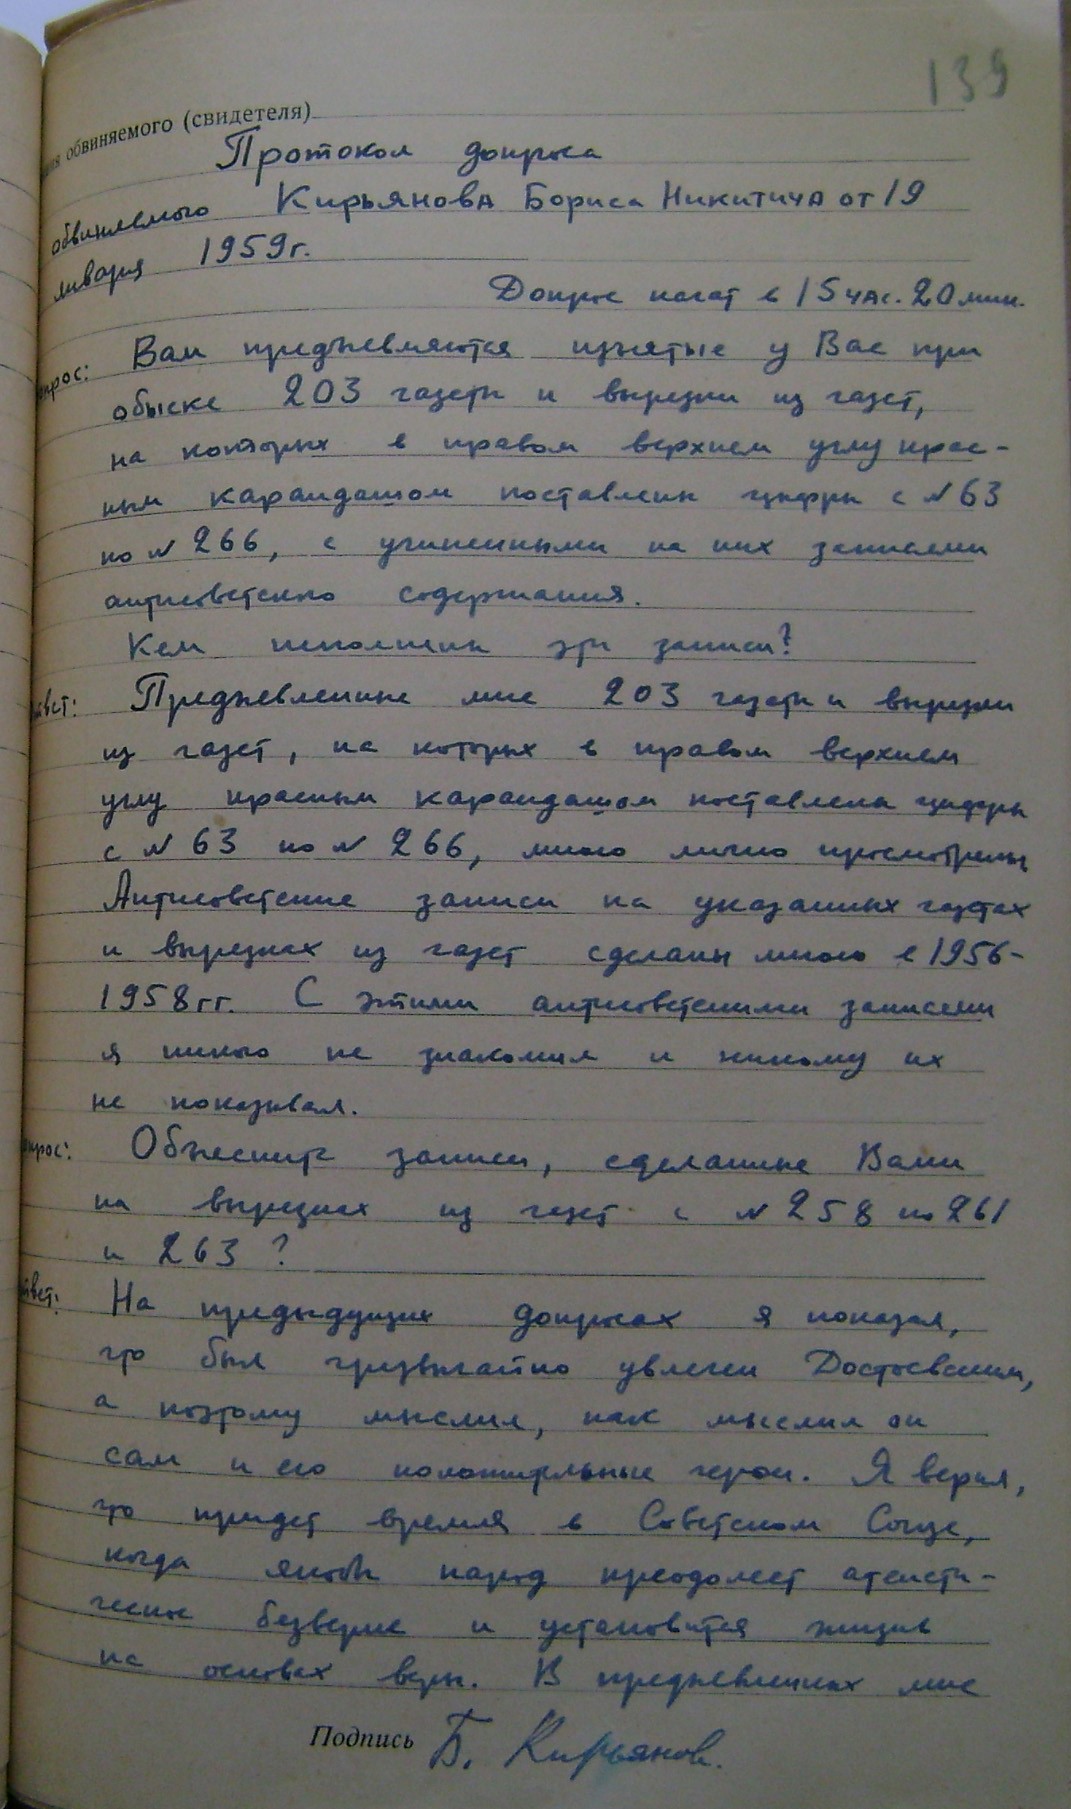 139
обвиняемого (свидетеля)
Протокол допроса
обвиняемого Кирьянова Бориса Никитича от 19
января 1959 г.
Допрос начат в 15 час. 20 мин.
опрос: Вам предъявляются изъятые у Вас при
обыске 203 газеты и вырезки из газет,
на которых в правом верхнем углу крас-
ным карандашом поставлены цифры с №63
по № 266, с учиненными на них записями
антисоветского содержания.
Кем исполнены эти записи?
твет: Предъявленные мне 203 газеты и вырезки
из газет, на которых в правом верхнем
углу красным карандашом поставлены цифры
с № 63 по № 266, мною лично просмотрены.
Антисоветские записи на указанных газетах
и вырезках из газет сделаны мною в 1956-
1958 гг. С этими антисоветскими записями
я никого не знакомил и никому их
не показывал.
опрос: Объясните записи, сделанные Вами
на вырезках из газет с № 258 по 261
и 263 ?
твет: На предыдущих допросах я показал,
что был чрезвычайно увлечен Достоевским,
а поэтому мыслил, как мыслил он
сам и его положительные герои. Я верил,
что придет время в Советском Союзе,
когда якобы народ преодолеет атеисти-
ческое безверие и установится жизнь
на основах веры. В предъявленных мне
Подпись Б. Кирьянов.